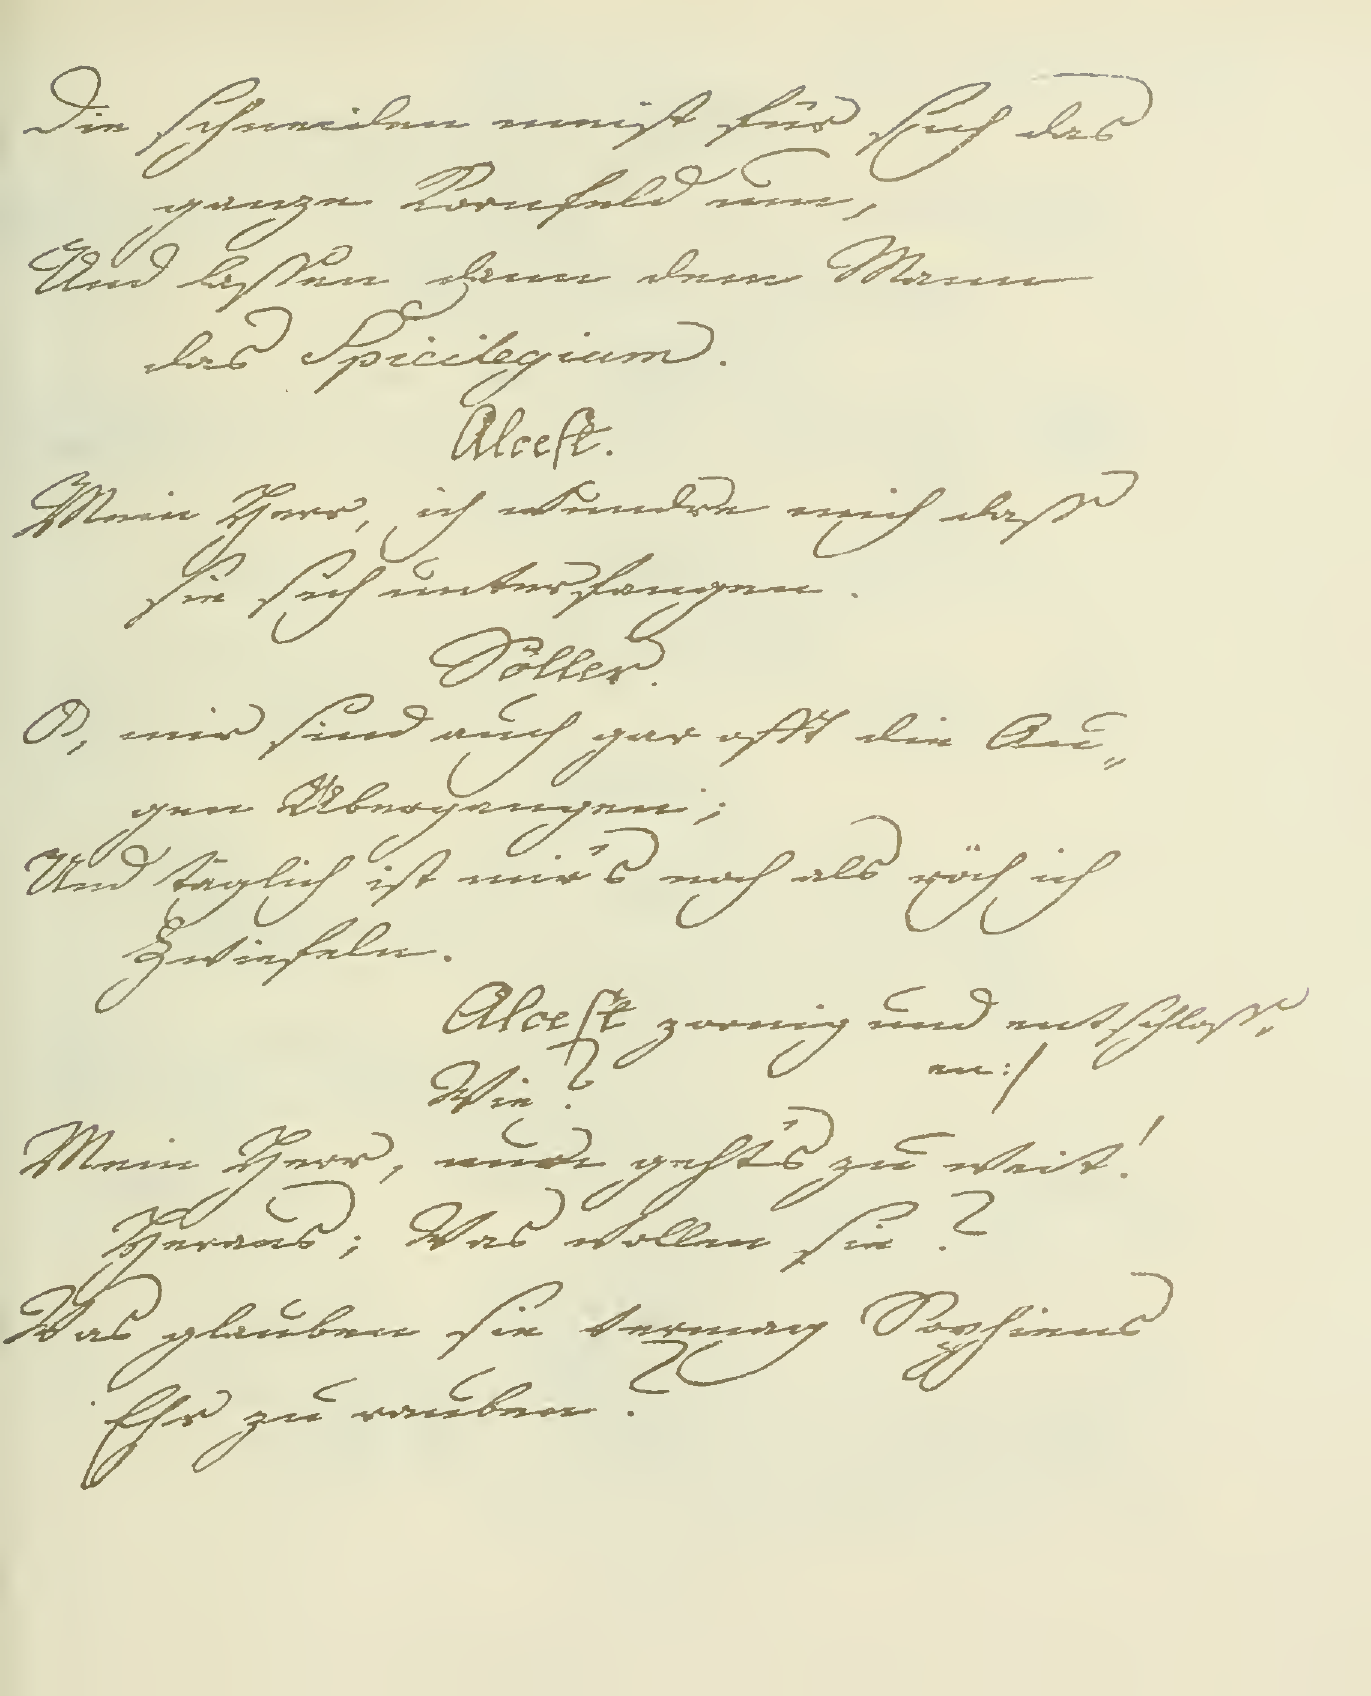 Die schneiden meist für sich das
ganze Kornfeld um,
Und lassen dann dem Mann
das Spicilegium.
Alcest.
Mein Herr, ich wundre mich dass
sie sich unterfangen.
Söller.
O, mir sind auch gar offt die Au„
gen Übergangen;
Und täglich ist mir's noch als röch ich
Zwiefeln.
Alcest zornig und entschloss„
en:/
Wie?
Mein Herr, nun geht's zu weit!
Heraus; Was wollen sie?
Was glauben sie vermag Sophiens
Ehr zu rauben?